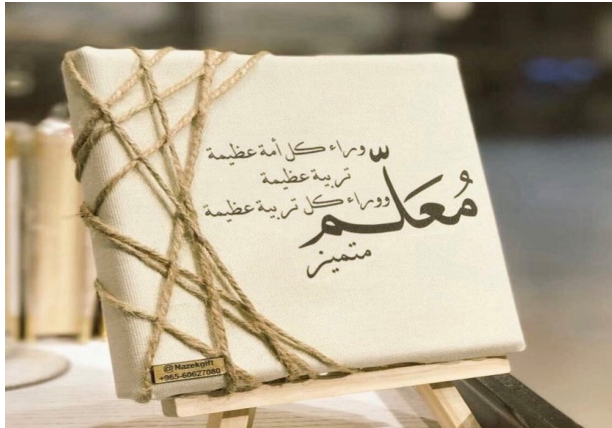 وراء كل أمة عظيمة
تربية عظيمة
ووراء كل تربية عظيمة
مُعَلّم
متميز
@Nazekgift
+965-60627080